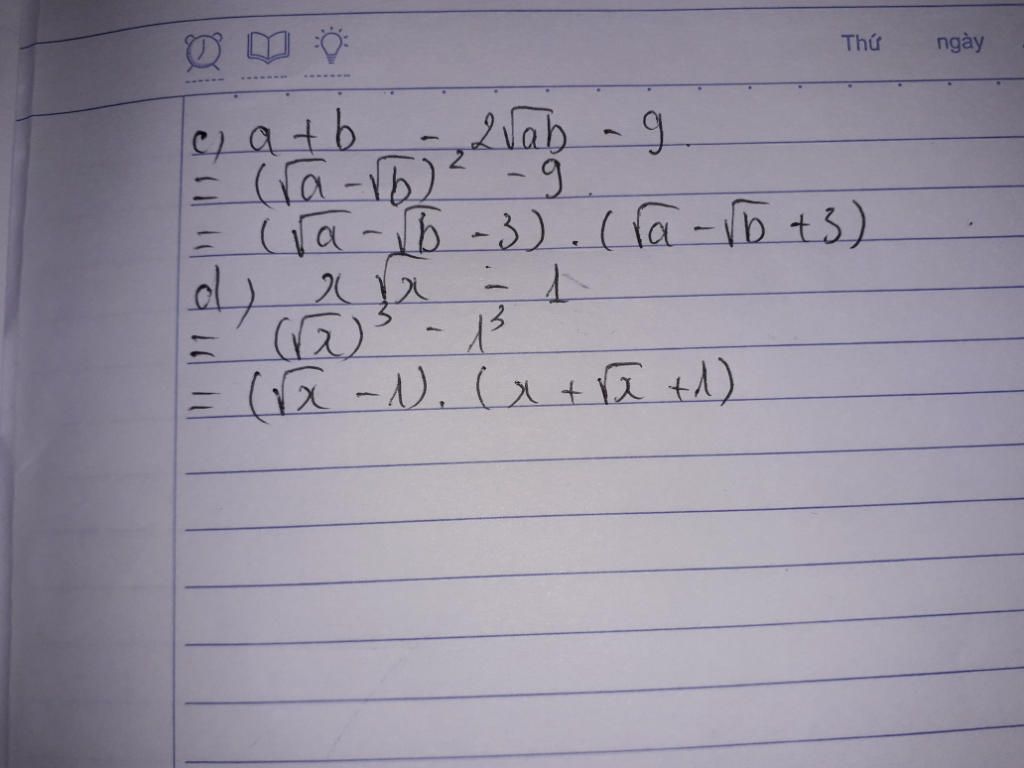 Thứ ngày
c) a + b - 2√ab - 9.
= (√a - √b)² - 9.
= (√a - √b - 3) . (√a - √b + 3)
d) x √x - 1
= (√x)³ - 1³
= (√x - 1) . (x + √x + 1)